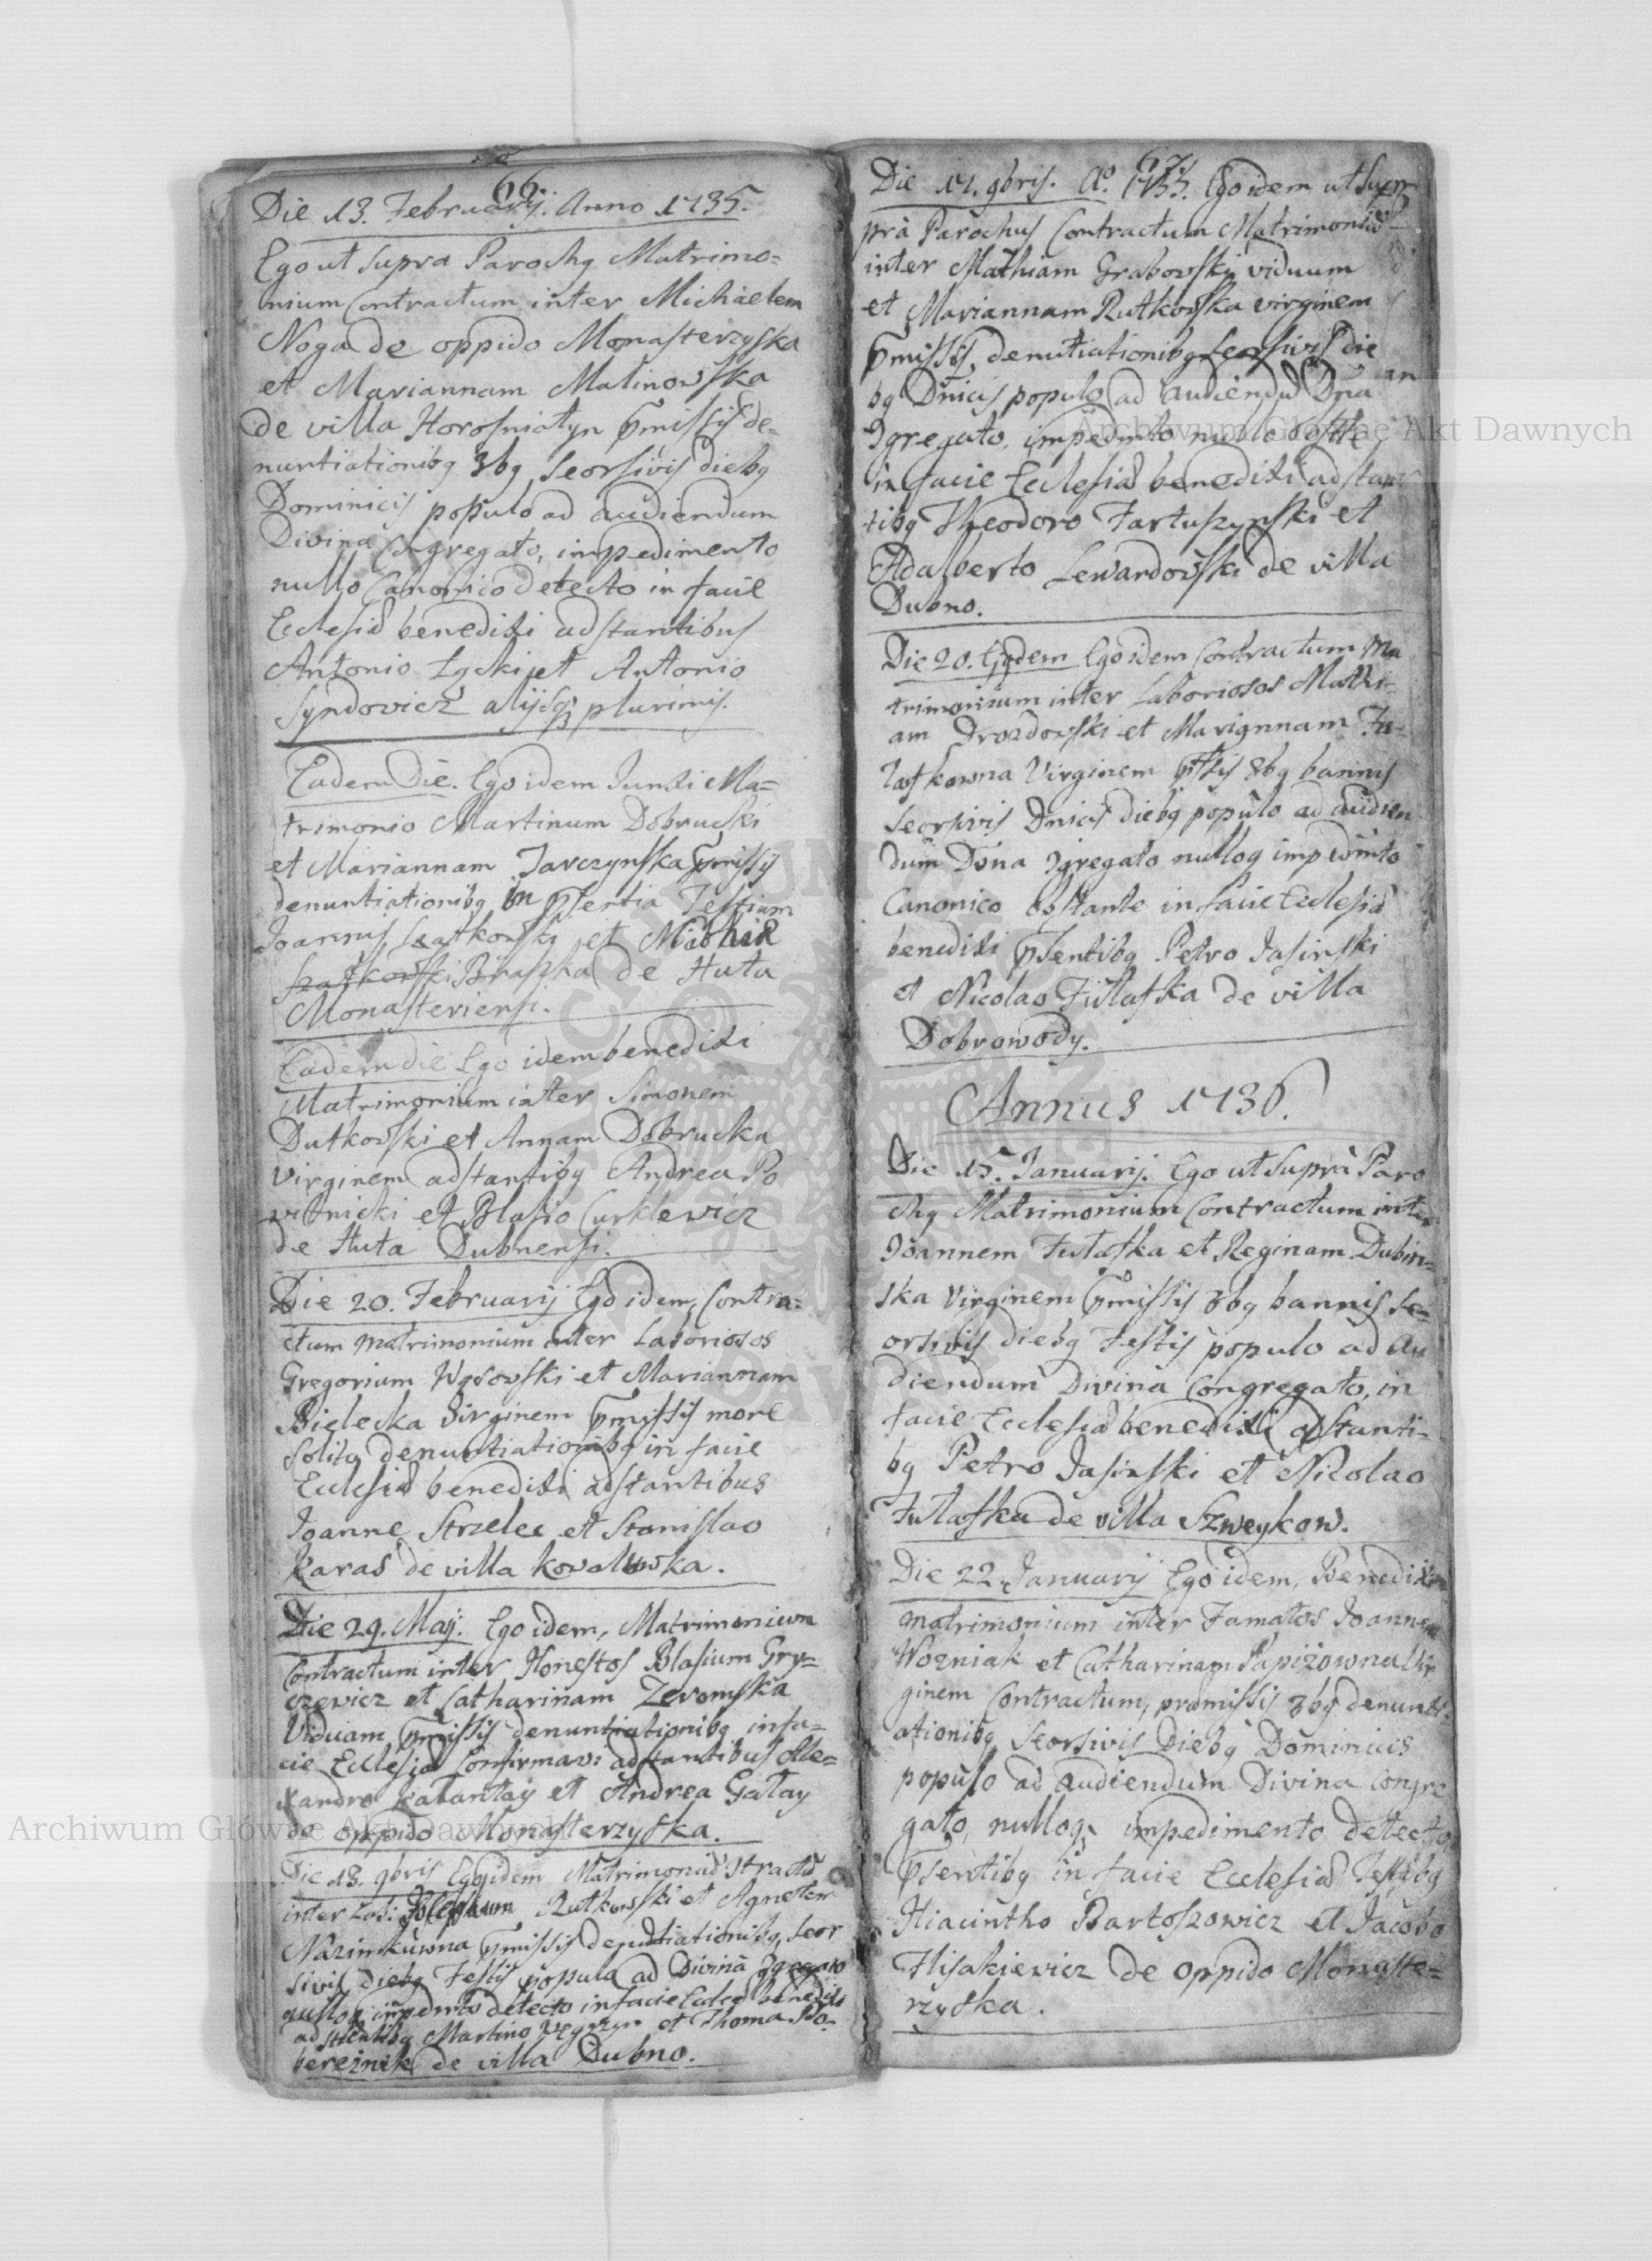 66.
Die 13. Februarij. Anno 1735.
Ego ut supra Parochq Matrimo=
nium Contractum inter Michaelem
Noga de oppido Monasterzyska
et Mariannam Malinowska
de villa Horosniatyn pmissis de=
nuntiationibq 3bq seorsivis diebq
Dominicis populo ad audiendum
Divina Congregato, impedimento
nullo Canonico detecto in facie
Ecclesiæ benedixi adstantibus
Antonio Lgcki et Antonio
Syndovicz alijsq plurimis.
Eadem Die. Ego idem Junxi Ma=
trimonio Martinum Dobrucki
et Mariannam Jarczynska pmissis
denuntiationibq in psentia Testium
Joannis Szatkowski et Michae
Szatkowski Braszka de Huta
Monasteriensi.
Eadem die Ego idem benedixi
Matrimonium inter Simonem
Dutkowski et Annam Dobrucka
Virginem adstantibq Andrea Po
wiknicki et Blasio Curklewicz
de Huta Dubnensi.
Die 20. Februarij Ego idem, Contra=
ctum matrimonium inter Laboriosos
Gregorium Wąsowski et Mariannam
Bielecka Virginem pmissis more
solito denuntiationibq in facie
Ecclesiæ benedixi adstantibus
Joanne Strzelec et Stanislao
Karas de villa Kowalowka.
Die 29. Maij: Ego idem, Matrimonium
Contractum inter Honestos Blasium Gry=
czewicz et Catharinam Zeromska
Viduam pmissis denuntiationibq in fa=
cie Ecclesiæ Confirmavi adstantibus Ale=
xandro Kalantay et Andrea Galay
de oppido Monasterzyska.
Die 13. 9bris Ego idem Matrimoniū 9tractū
inter Lab: Josephum Rutkowski et Agnetem
Nazimkowna pmissis denutiationibq, seor
sivis diebq Festis populo ad Divina 9gregato
nulloq impedmto detecto in facie Eccles benedixi
adstantibq Martino Wegrzyn et Thoma Po=
bereznik de villa Dubno.
67.
Die 11. 9bris. Ao. 1735. Ego idem ut su
pra Parochus Contractum Matrimoniū
inter Mathiam Grabowski viduum
et Mariannam Rutkowska virginem
pmissis denutiationibq seorsivis die
bq Dnicis populo ad audiendū Dna
9gregato, impedmto nullo obstte
in facie Ecclesiæ benedixi adstan
tibq Theodoro Tartuszynski et
Adalberto Lewandowski de villa
Dubno.
Die 20. Ejqdem Ego idem Contractum Ma
trimonium inter Laboriosos Mathi=
am Drozdowski et Mariannam Fu=
laskowna Virginem pssis 3bq bannis
seorsivis Dnicis diebq populo ad audien
dum Dvna 9gregato nulloq impedmto
Canonico obstante in facie Ecclesiæ
benedixi psentibq Petro Jasinski
et Nicolao Fulaska de villa
Dobrowody.
Annus 1736.
Die 15. Januarij. Ego ut supra Paro
chq Matrimonium Contractum inter
Joannem Fulaska et Reginam Dubin=
ska Virginem pmissis 3bq bannis se=
orsivis diebq Festis populo ad au
diendum Divina Congregato, in
facie Ecclesiæ benedixi adstanti=
bq Petro Jasinski et Nicolao
Fulaska de villa Szweykow.
Die 22 Januarij Ego idem, Benedixi
matrimonium inter Famatos Joannem
Wozniak et Catharinam Papizowna Vir
ginem Contractum, præmissis 3bq denunti=
ationibq seorsivis Diebq Dominicis
populo ad audiendum Divina Congre
gato, nulloq impedimento detecto,
psentibq in facie Ecclesiæ Testibq
Hiacintho Bartoszowicz et Jacobo
Hisakiewicz de oppido Monaste=
rzyska.
Archiwum Główne Akt Dawnych
Archiwum Główne Akt Dawnych